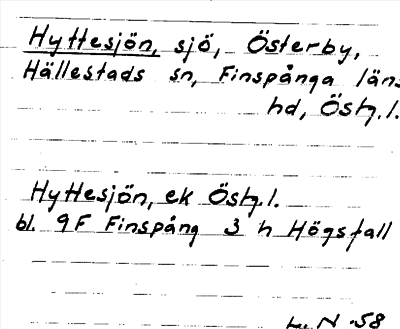 Hyttesjön, sjö, Österby,
Hällestads sn, Finspånga läns
hd, Östg. l.
Hyttesjön, ek Östg. l.
bl. 9F Finspång 3 h Högsfall
N -58